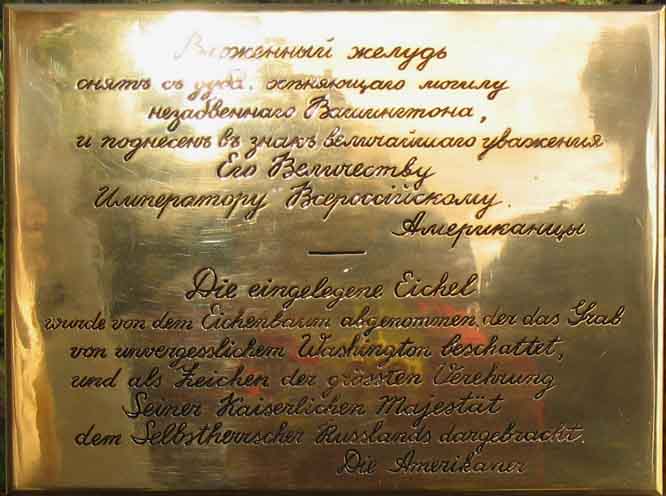 Вложенный желудь
снятъ съ дуба, осѣняющаго могилу
незабвеннаго Вашингтона,
и поднесенъ въ знакъ величайшаго уваженія
Его Величеству
Императору Всероссійскому.
Американцы
Die eingelegene Eichel
wurde von dem Eichenbaum abgenommen, der das Grab
von unvergesslichem Washington beschattet,
und als Zeichen der grössten Verehrung
Seiner Kaiserlichen Majestät
dem Selbstherrscher Russlands dargebracht.
Die Amerikaner